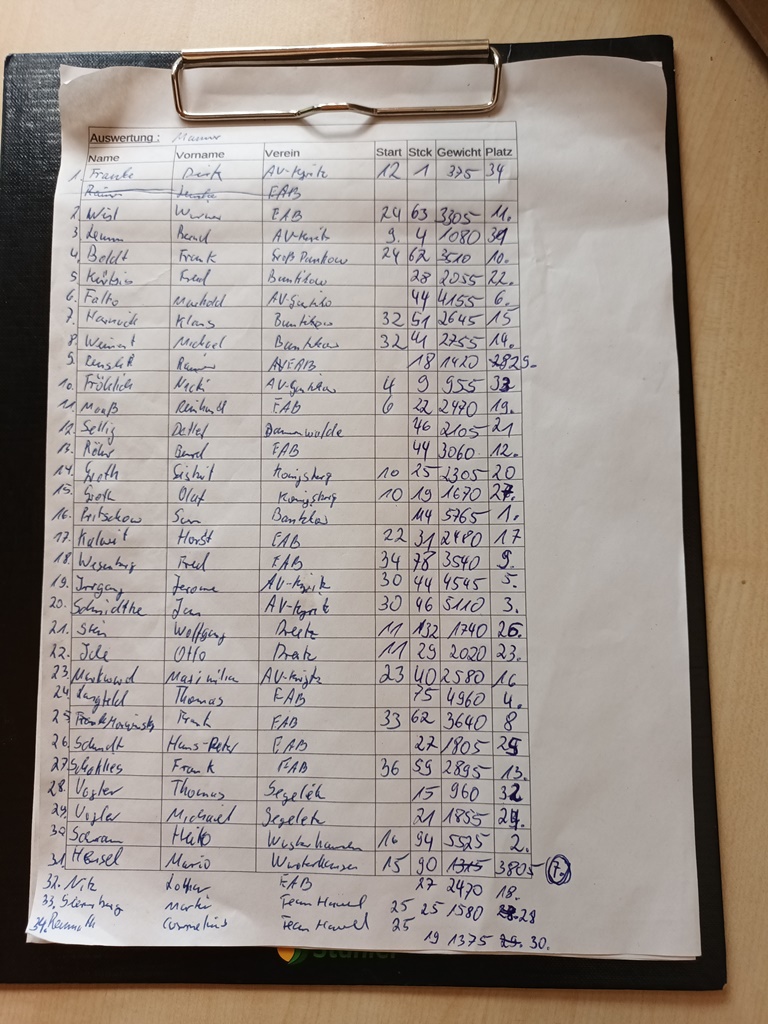 Auswertung : Männer
Name Vorname Verein Start Stck Gewicht Platz
1. Franke Dirk AV-Kyritz 12 1 375 34
EAB
2. Wirl Werner EAB 24 63 3305 11.
3. Bernd AV-Kyritz 9. 4 1080 31
4. Boldt Frank Groß Pankow 24 62 3510 10.
5. Fred Bantikow 28 2055 22.
6. Falko 44 4155 6.
7. Klaus Bantikow 32 51 2645 15
8. Weinert Michael Bantikow 32 41 2755 14.
9. Rainer EAB 18 1420 29.
10. Fröhlich Nicki 4 9 955 33
11. Maaß Reinhard EAB 6 22 2470 19.
12. Sellig Detlef 46 2105 21
13. Röhr Bernd EAB 44 3060 12.
14. Groth Königsberg 10 25 2305 20
15. Groth Olaf Königsberg 10 19 1670 27.
16. Pritschow Sven Bantikow 114 5765 1.
17. Kalweit Horst EAB 22 31 2480 17
18. Wesenberg Fred EAB 34 78 3540 9.
19. Irrgang Jerome AV-Kyritz 30 44 4545 5.
20. Schmidtke Jan AV-Kyritz 30 46 5110 3.
21. Stein Wolfgang Breetz 11 132 1740 26.
22. Ide Otto Breetz 11 29 2020 23.
23. Markward Maximilian AV-Kyritz 23 40 2580 16
24. Langfeld Thomas EAB 75 4960 4.
25 Frank EAB 33 62 3640 8
26. Schmidt Hans-Peter EAB 27 1805 25
27. Frank EAB 36 59 2895 13.
28. Vogler Thomas Segeletz 15 960 32
29. Vogler Michael Segeletz 21 1855 24.
30 Schramm Heiko Wusterhausen 16 94 5525 2.
31. Hensel Mario Wusterhausen 15 90 1315 3805 7.
32. Nitz Lothar EAB 27 2470 18.
33. Sternburg Martin Team Havel 25 25 1580 28
34. Cornelius Team Havel 25
19 1375 29. 30.